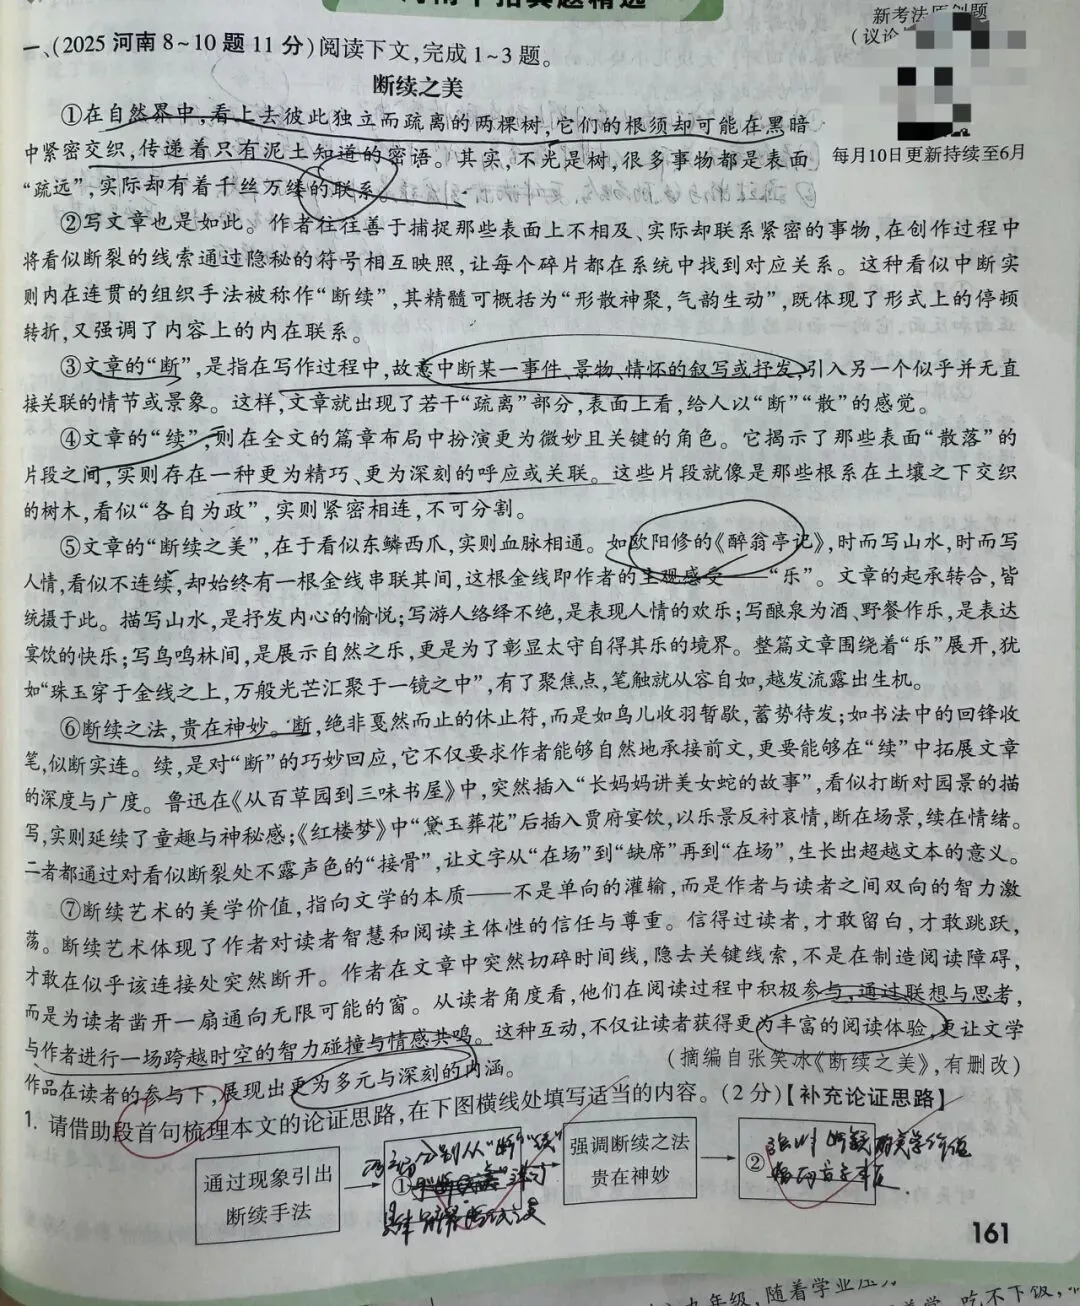 新考法原创题
一、(2025河南8~10题11分)阅读下文,完成1~3题。
(议论
断续之美
①在自然界中,看上去彼此独立而疏离的两棵树,它们的根须却可能在黑暗
中紧密交织,传递着只有泥土知道的密语。其实,不光是树,很多事物都是表面
每月10日更新持续至6月
“疏远”,实际却有着千丝万缕的联系。
②写文章也是如此。作者往往善于捕捉那些表面上不相及、实际却联系紧密的事物,在创作过程中
将看似断裂的线索通过隐秘的符号相互映照,让每个碎片都在系统中找到对应关系。这种看似中断实
则内在连贯的组织手法被称作“断续”,其精髓可概括为“形散神聚,气韵生动”,既体现了形式上的停顿
转折,又强调了内容上的内在联系。
③文章的“断”,是指在写作过程中,故意中断某一事件、景物、情怀的叙写或抒发,引入另一个似乎并无直
接关联的情节或景象。这样,文章就出现了若干“疏离”部分,表面上看,给人以“断”“散”的感觉。
④文章的“续”,则在全文的篇章布局中扮演更为微妙且关键的角色。它揭示了那些表面“散落”的
片段之间,实则存在一种更为精巧、更为深刻的呼应或关联。这些片段就像是那些根系在土壤之下交织
的树木,看似“各自为政”,实则紧密相连,不可分割。
⑤文章的“断续之美”,在于看似东鳞西爪,实则血脉相通。如欧阳修的《醉翁亭记》,时而写山水,时而写
人情,看似不连续,却始终有一根金线串联其间,这根金线即作者的主观感受——“乐”。文章的起承转合,皆
统摄于此。描写山水,是抒发内心的愉悦;写游人络绎不绝,是表现人情的欢乐;写酿泉为酒、野餐作乐,是表达
宴饮的快乐;写鸟鸣林间,是展示自然之乐,更是为了彰显太守自得其乐的境界。整篇文章围绕着“乐”展开,犹
如“珠玉穿于金线之上,万般光芒汇聚于一镜之中”,有了聚焦点,笔触就从容自如,越发流露出生机。
⑥断续之法,贵在神妙。断,绝非戛然而止的休止符,而是如鸟儿收羽暂歇,蓄势待发;如书法中的回锋收
笔,似断实连。续,是对“断”的巧妙回应,它不仅要求作者能够自然地承接前文,更要能够在“续”中拓展文章
的深度与广度。鲁迅在《从百草园到三味书屋》中,突然插入“长妈妈讲美女蛇的故事”,看似打断对园景的描
写,实则延续了童趣与神秘感;《红楼梦》中“黛玉葬花”后插入贾府宴饮,以乐景反衬哀情,断在场景,续在情绪。
二者都通过对看似断裂处不露声色的“接骨”,让文字从“在场”到“缺席”再到“在场”,生长出超越文本的意义。
⑦断续艺术的美学价值,指向文学的本质——不是单向的灌输,而是作者与读者之间双向的智力激
荡。断续艺术体现了作者对读者智慧和阅读主体性的信任与尊重。信得过读者,才敢留白,才敢跳跃,
才敢在似乎该连接处突然断开。作者在文章中突然切碎时间线,隐去关键线索,不是在制造阅读障碍,
而是为读者凿开一扇通向无限可能的窗。从读者角度看,他们在阅读过程中积极参与,通过联想与思考,
与作者进行一场跨越时空的智力碰撞与情感共鸣。这种互动,不仅让读者获得更为丰富的阅读体验,更让文学
作品在读者的参与下,展现出更为多元与深刻的内涵。
(摘编自张笑冰《断续之美》,有删改)
1. 请借助段首句梳理本文的论证思路,在下图横线处填写适当的内容。(2分)【补充论证思路】
通过现象引出
断续手法
①
分别从“断”“续”
强调断续之法
贵在神妙
②
美学价值
161
随着学业压力
吃不下饭,